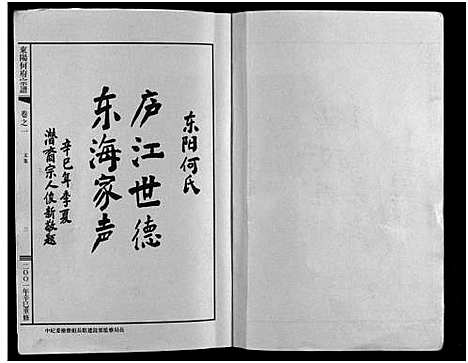 东阳何氏
庐江世德
东海家声
辛巳年季夏
潜裔宗人俊新敬题
東陽何府宗譜
卷之一
二〇〇一年辛巳重修